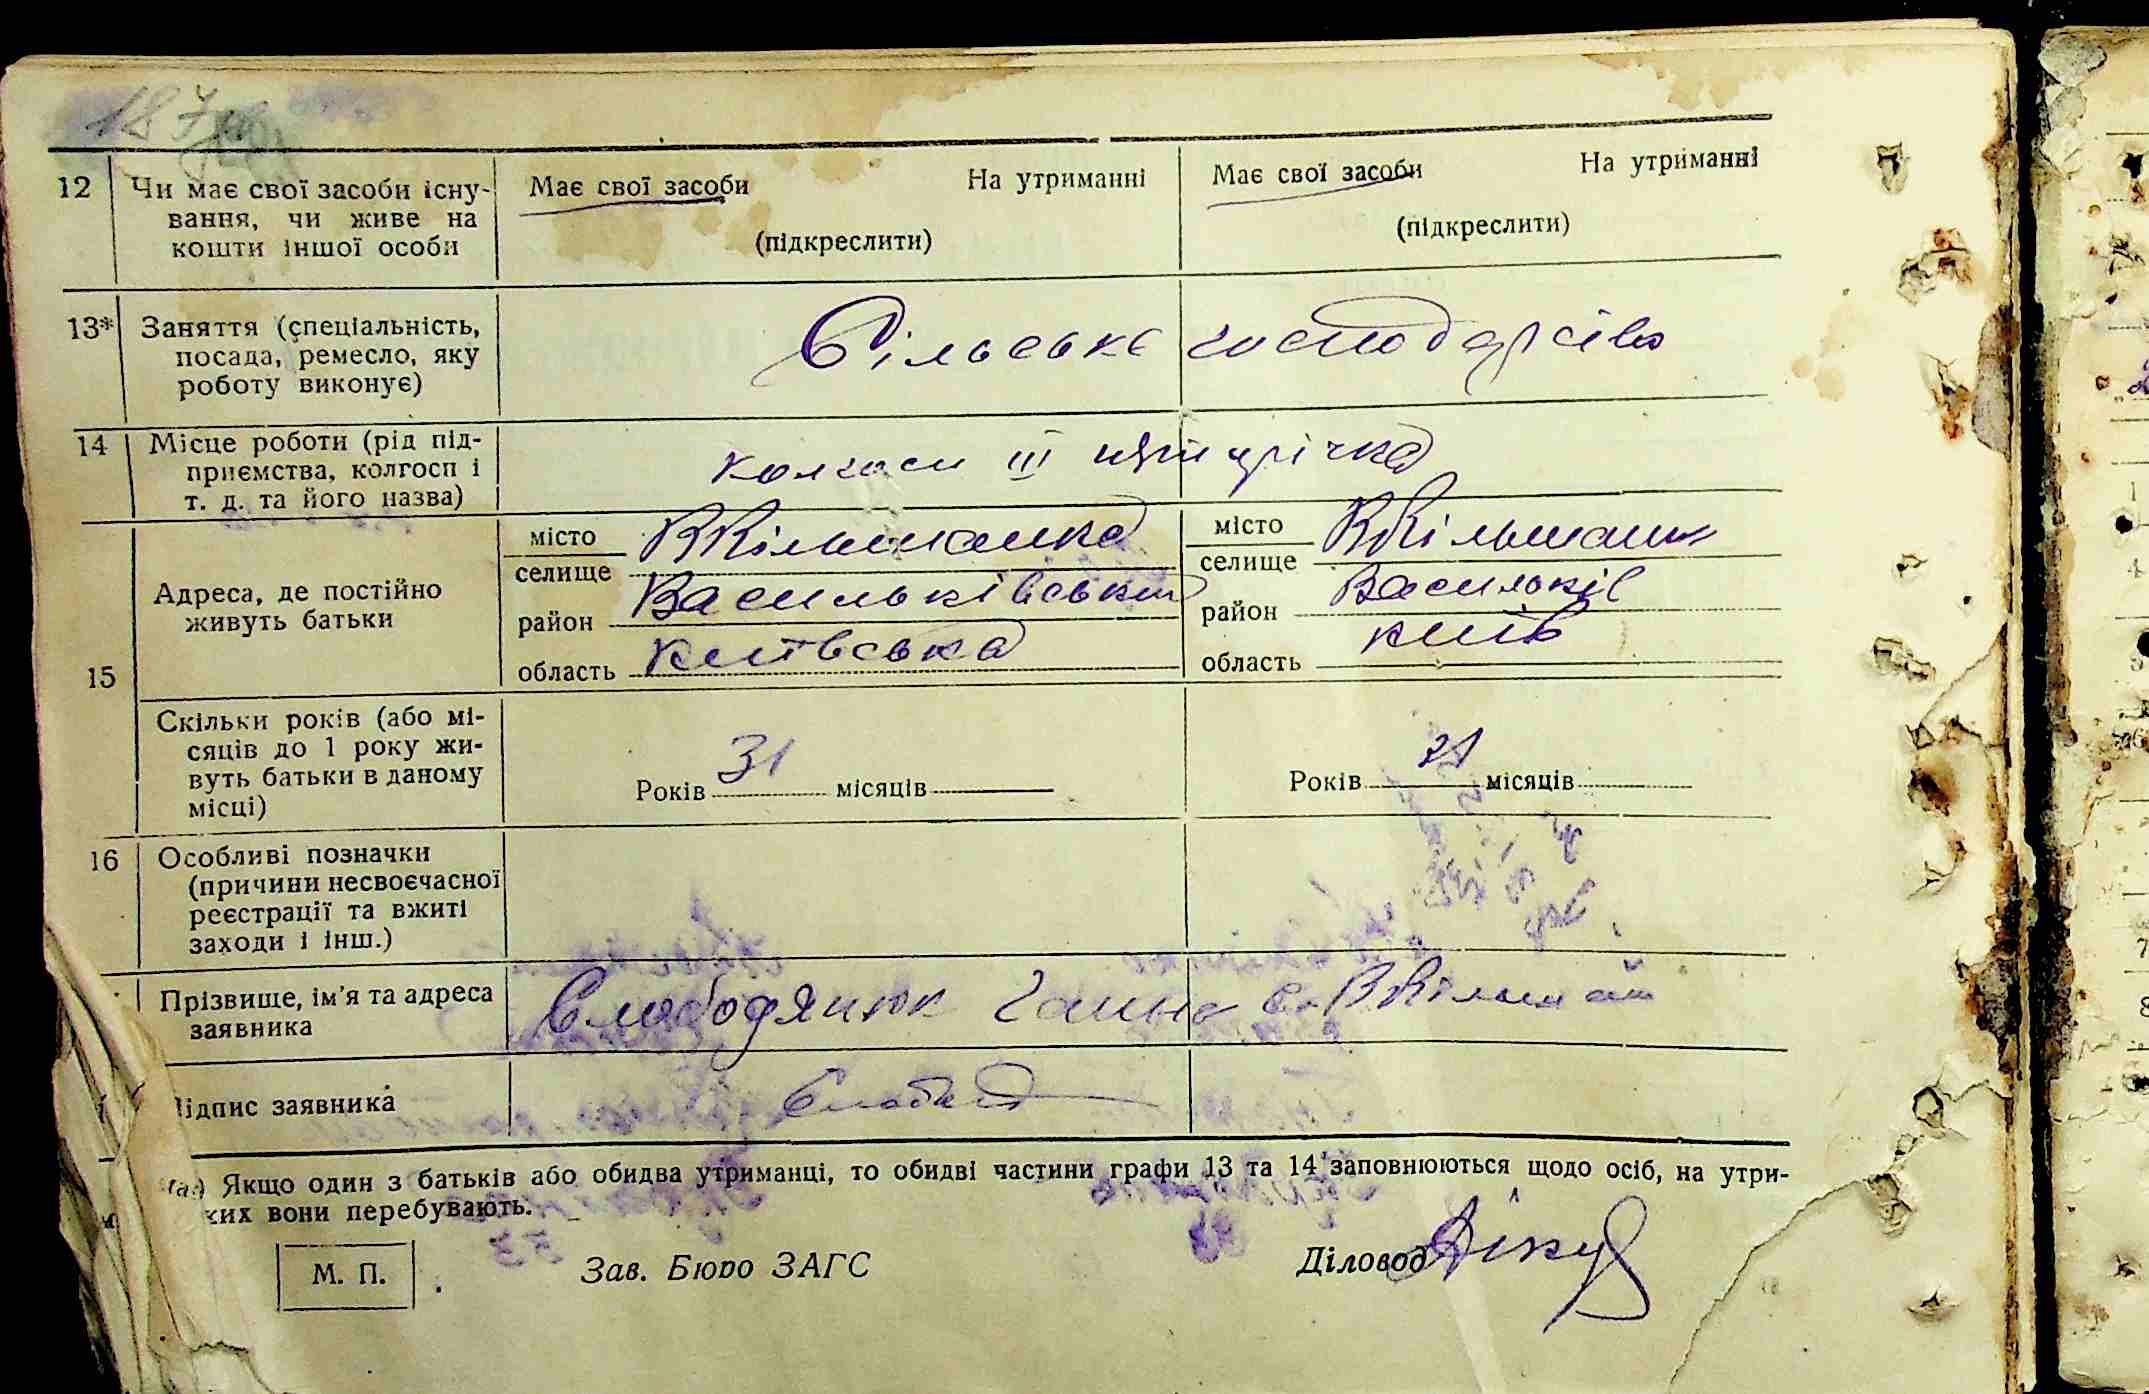 187
12 Чи має свої засоби існу-
вання, чи живе на
кошти іншої особи
Має свої засоби На утриманні
(підкреслити)
Має свої засоби На утриманні
(підкреслити)
13* Заняття (спеціальність,
посада, ремесло, яку
роботу виконує)
Сільське господарство
14 Місце роботи (рід під-
приємства, колгосп і
т. д. та його назва)
колгосп III пятирічка
15
Адреса, де постійно
живуть батьки
місто
селище
ВКільшанка
район Васильківський
область Київська
місто
селище
ВКільшанк
район Васильків
область київ
Скільки років (або мі-
сяців до 1 року жи-
вуть батьки в даному
місці)
Років 31 місяців
Років 21 місяців
16 Особливі позначки
(причини несвоєчасної
реєстрації та вжиті
заходи і інш.)
Прізвище, ім'я та адреса
заявника
Слободянюк Ганна с. ВКільшан
ідпис заявника
Слобод
Якщо один з батьків або обидва утриманці, то обидві частини графи 13 та 14 заповнюються щодо осіб, на утри-
ких вони перебувають.
М. П.
Зав. Бюро ЗАГС
Діловод